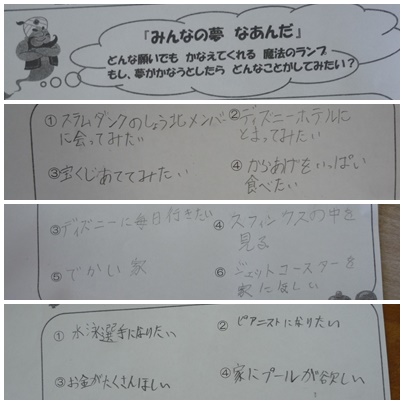 『みんなの夢 なあんだ』
どんな願いでも かなえてくれる 魔法のランプ
もし、夢がかなうとしたら どんなことがしてみたい?
①スラムダンクのしょう北メンバー
に会ってみたい
②ディズニーホテルに
とまってみたい
③宝くじあててみたい
④からあげをいっぱい
食べたい
③ディズニーに毎日行きたい
④スフィンクスの中を
見る
⑤でかい家
⑥ジェットコースターを
家にほしい
①水泳選手になりたい
②ピアニストになりたい
③お金がたくさんほしい
④家にプールが欲しい